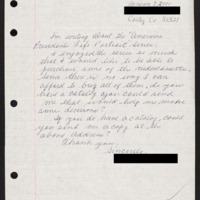 I'm writing about the "American
Presidents" Life Portrait Series.
I enjoyed the series so much
that I would like to be able to
purchase some of the videocassettes.
Since there is no way I can
afford to buy all of them, do you
have a catalog you could send
me that would help me make
some decisions?
If you do have a catalog, could
you send me a copy at the
above address?
Thank you,
Sincerely,